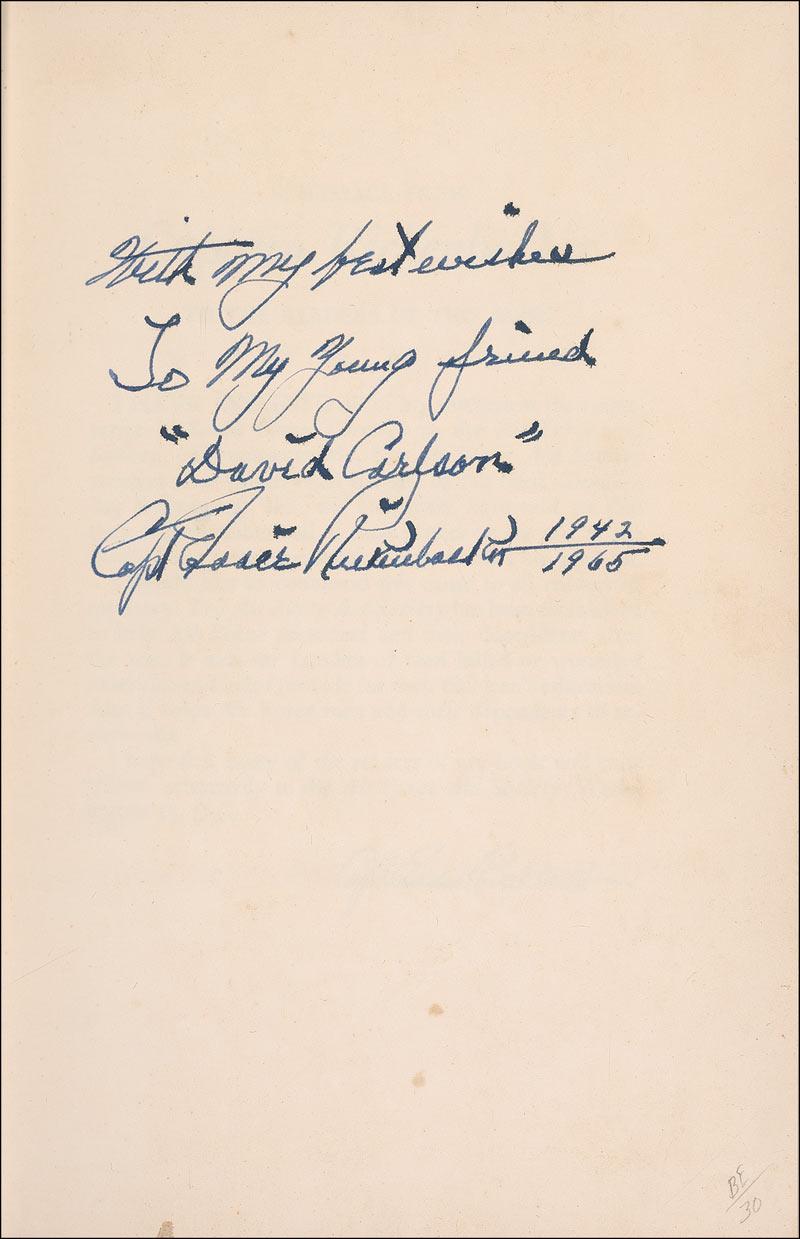 With my best wishes
To My Young friend
"David Carlson"
Capt Eddie Rickenbacker 1942
1965
BE
30